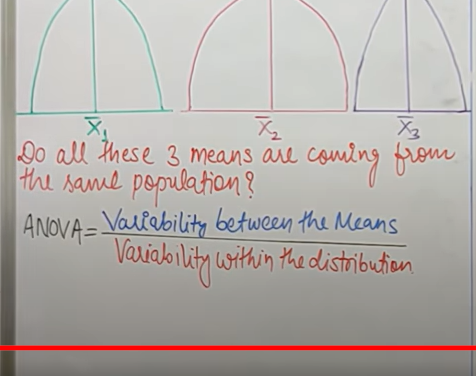 X̄₁ X̄₂ X̄₃
Do all these 3 means are coming from
the same population?
ANOVA = Variability between the Means
Variability within the distribution